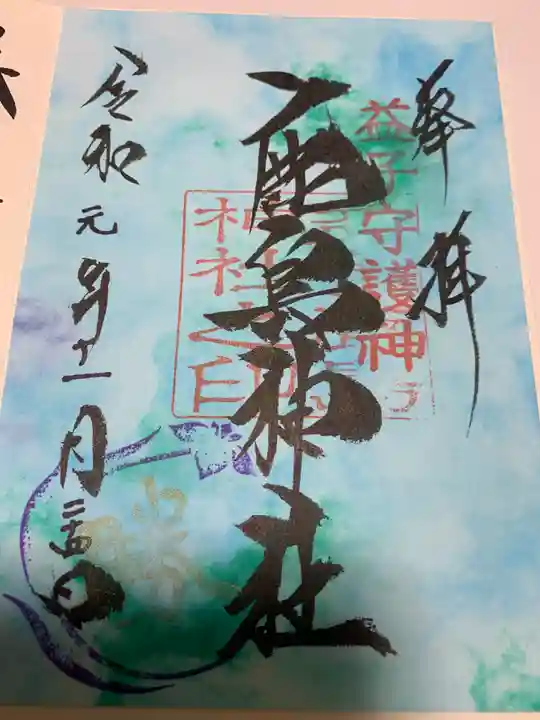 奉拝
益子守護神
鹿島神社
神社之印
令和元年十一月二十四日